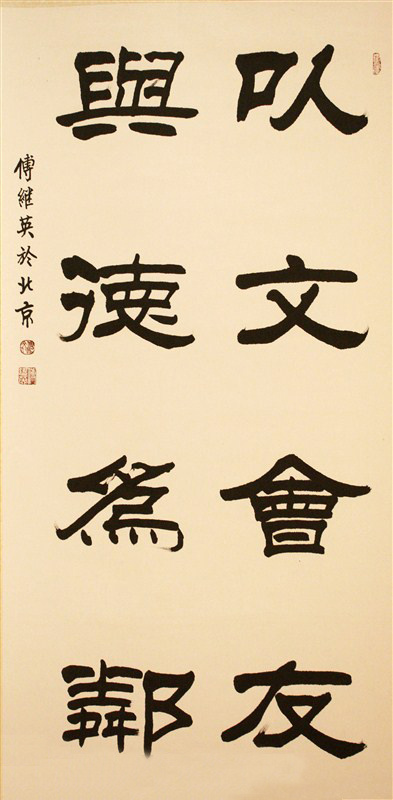 以文會友
與德爲鄰
傅維英於北京